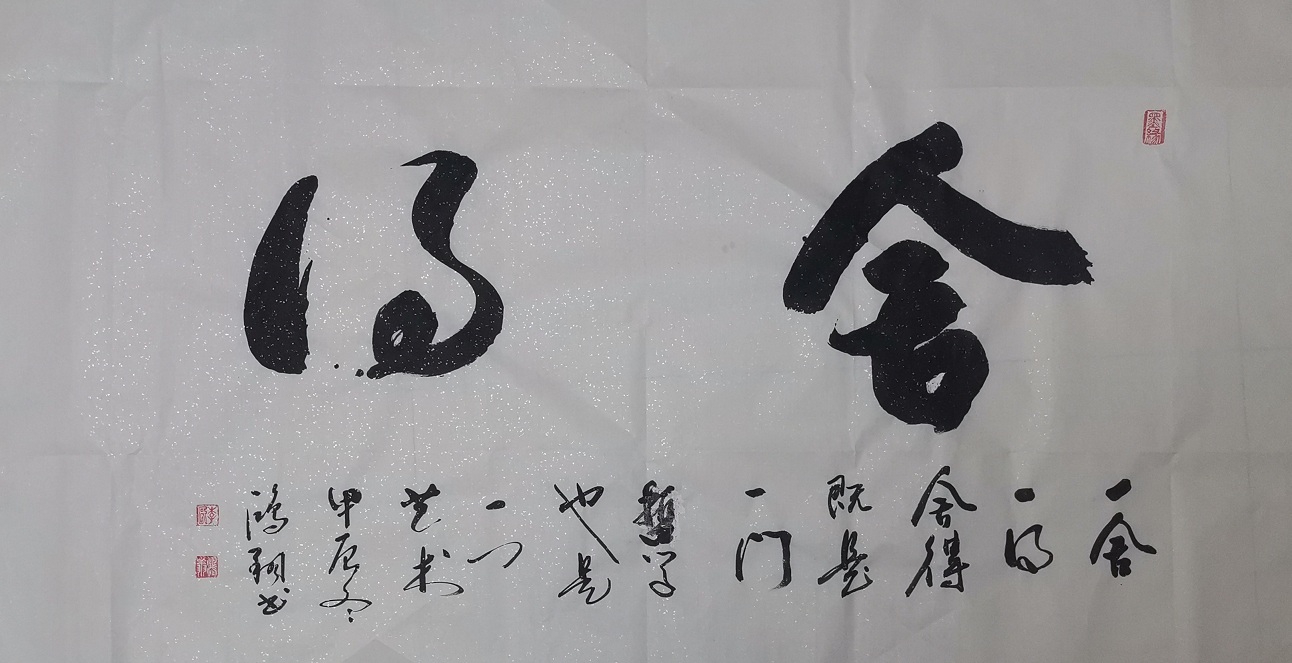 舍得
一舍
一得
舍得
既是
一门
哲学
也是
一门
艺术
甲辰冬
鸿翔书